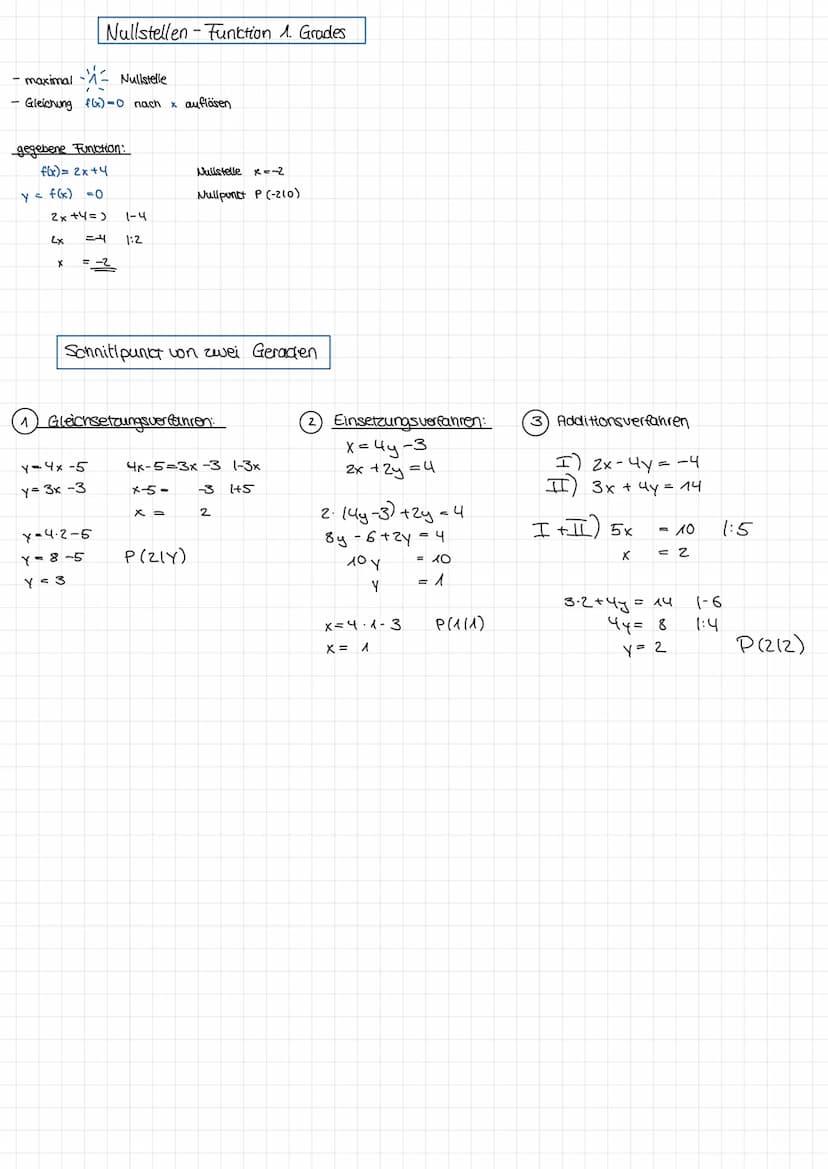 Nullstellen - Funktion 1. Grades
- maximal 1 Nullstelle
- Gleichung f(x)=0 nach x auflösen
gegebene Funktion:
f(x)= 2x+4
y = f(x) =0
2x+4=0 |-4
2x =-4 |:2
x = -2
Nullstelle x=-2
Nullpunkt P(-2|0)
Schnittpunct von zwei Geraden
1 Gleichsetzungsverfahren:
y=4x-5
y=3x-3
4x-5=3x-3 |-3x
x-5= -3 |+5
x = 2
y=4·2-5
y=8-5
y=3
P(2|Y)
2 Einsetzungsverfahren:
x=4y-3
2x+2y=4
2·(4y-3)+2y=4
8y-6+2y=4
10y = 10
y = 1
x=4·1-3
x= 1
P(1|1)
3 Additionsverfahren
I) 2x-4y=-4
II) 3x+4y=14
I+II) 5x = 10 |:5
x = 2
3·2+4y= 14 |-6
4y= 8 |:4
y= 2
P(2|2)